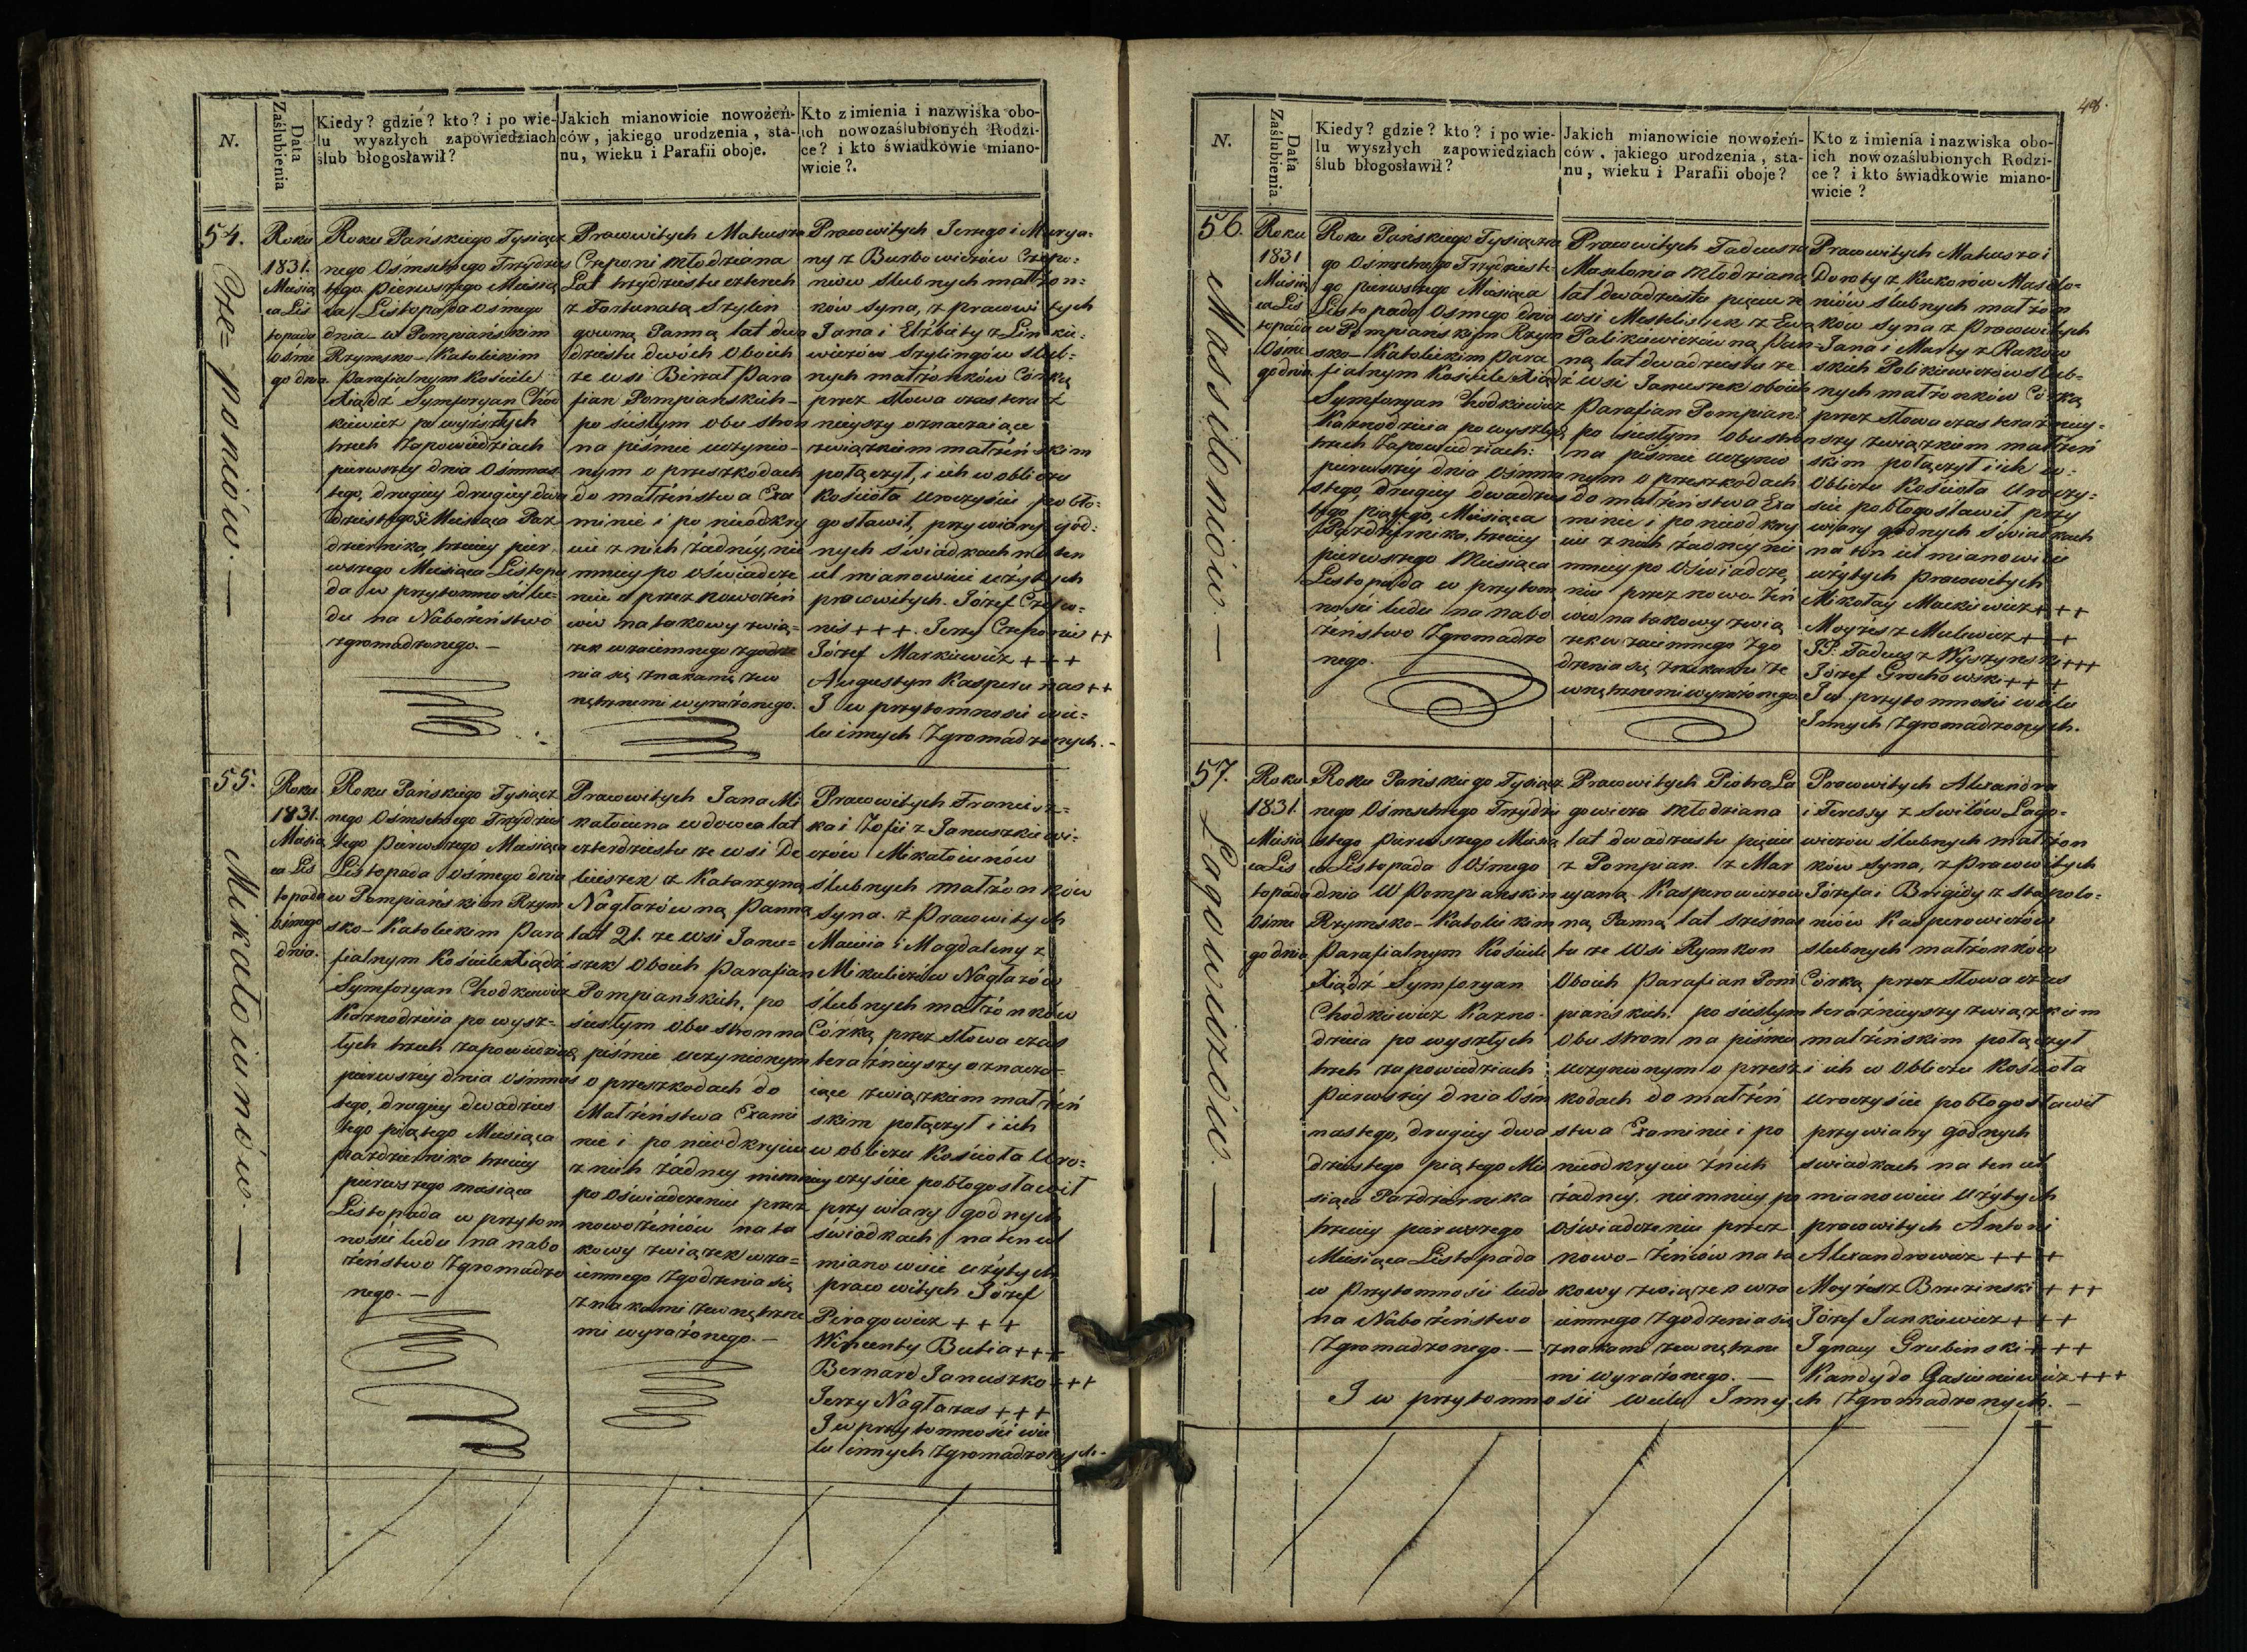 N.
Data
Zaślubienia
Kiedy? gdzie? kto? i po wie-
lu wyszłych zapowiedziach
ślub błogosławił?
Jakich mianowicie nowożeń-
ców, jakiego urodzenia, sta-
nu, wieku i Parafii oboje.
Kto z imienia i nazwiska obo-
ich nowozaślubionych Rodzi-
ce? i kto świadkowie miano-
wicie?.
54.
Czeponiow. —
Roku
1831.
Miesią
ca Lis
topada
osme
go dnia
Roku Pańskiego Tysiącz
nego Ośmsetnego Trzydzies
tego pierwszego Miesią
ca Listopada osmego
dnia w Pompiańskim
Rzymsko-Katolickim
Parafialnym Kościele
Xiądz Symforyan Chod
kiewicz po wyszłych
trzech Zapowiedziach
pierwszey dnia Osmnas
tego, drugiey
Miesiąca Paz
dziernika, trzeciey pier
wszego Miesiąca Listopa
da w przytomności lu-
du na Nabożeństwo
zgromadzonego. —
Pracowitych Mateusza
Czeponi Młodziana
Lat trzydziestu czterech
z Fortunatą Szylin
gowną Panną lat dwa
dziestu dwóch Oboich
ze wsi Birżał Para
fian Pompianskich -
po ścisłym obu stron
na piśmie uczynio-
nym o przeszkodach
do małżeństwa Exa
minie i po nieodkry
ciu z nich żadney, nie
mniey po oświadcze
niu przez nowożeń
ców na takowy zwią-
zek wzaiemnego zgodze
nia się znakami zew
nętrznemi wyrażonego.
Pracowitych Jerzego i Marya-
ny z Burbowiczów Czepo-
niow slubnych małżon-
ków Syna, z pracowitych
Jana i Elżbiety z Linkie-
wiczów Szylingów slub-
nych małżonków Córką
przez słowa czas tera
nieyszy oznaczaiące
związkiem małżeńskim
połączył, i ich w obliczu
kościoła uroczyście pobło-
gosławił, przy wiary god-
nych świadkach na ten
cel mianowicie użytych
pracowitych. Józef Czepo-
nis +++. Jerzy Czeponis ++
Józef Markiewicz +++
Augustyn Kasperunas ++
I w przytomności wie-
lu innych Zgromadzonych. -
55.
Mikałoiunów. —
Roku
1831.
Miesią
ca Lis
topada
ósmego
dnia.
Roku Pańskiego Tysiącz
nego Ośmsetnego Trzydzies
tego pierwszego Miesiąca
Listopada ósmego dnia
w Pompiańskim Rzym
sko-Katolickim Para
fialnym Kościele Xiądz
Symforyan Chodkiewicz
Kaznodzieia po wysz-
łych trzech zapowiedziach
pierwszey dnia Osmnas
tego, drugiey dwadzies
tego piątego Miesiąca
pazdziernika trzeciey
pierwszego miesiąca
Listopada w przytom
ności ludu na nabo
żeństwo Zgromadzo
nego. —
Pracowitych Jana Mi
kałoiuna wdowca lat
czterdziestu ze wsi De
z Katarzyną
Nagłazówną Panną
lat 21. ze wsi Janu-
szek Oboich parafian
Pompianskich, po
scisłym obu stron na
piśmie uczynionym
o przeszkodach do
Małżeństwa Exami
nie i po nieodkryciu
z nich żadney niemniey
po Oświadczeniu przez
nowożeńców na ta
kowy związek wza-
iemnego zgodzenia się
znakami zewnętrzne
mi wyrażonego. —
Pracowitych Francisz-
ka i Zofii z Januszkiewi-
czów Mikałoiunów
ślubnych małżonków
Syna. z Pracowitych
Macieia i Magdaleny z
Mikuliczów Nagłazów
ślubnych małżonków
Córką przez słowa czas
teraźnieyszy oznacza-
iące związkiem małżeń
skim połączył i ich
w obliczu Kościoła Uro-
czyście pobłogosławił
przy wiary godnych
świadkach na ten cel
mianowicie użytych
pracowitych Józef
Piragowicz +++
Wincenty Butia +++
Bernard Januszko +++
Jerzy Nagłazas +++
I w przytomności wie
lu innych zgromadzonych -
48.
N.
Data
Zaślubienia
Kiedy? gdzie? kto? i po wie-
lu wyszłych zapowiedziach
ślub błogosławił?
Jakich mianowicie nowożeń-
ców, jakiego urodzenia, sta-
nu, wieku i Parafii oboje?
Kto z imienia i nazwiska obo-
ich nowozaślubionych Rodzi-
ce? i kto świadkowie miano-
wicie?
56.
Masiloniow. —
Roku
1831
Miesią
ca Lis
topada
Osme
go dnia
Roku Pańskiego Tysiączne
go Osmsetnego Trzydzieste
go pierwszego Miesiąca
Listopada Osmego dnia
w Pompiańskim Rzym
sko-Katolickim Para
fialnym Kościele Xiądz
Symforyan Chodkiewicz
Kaznodzieia po wyszłych
trzech Zapowiedziach:
pierwszey dnia Osmna
stego, drugiey dwadzies
tego piątego, Miesiąca
Pazdziernika, trzeciey
pierwszego Miesiąca
Listopada w przytom
ności ludu na nabo
żeństwo Zgromadzo
nego.
Pracowitych Tadeusza
Masilonia Młodziana
lat dwadziestu pięciu ze
wsi z Ewą
Palikiewiczówną Pan-
ną lat dwadziestu ze
wsi Januszek oboich
Parafian Pompian
po ścisłym obu stron
na piśmie uczynio
nym o przeszkodach
do małżeństwa Exa
minie i po nieodkry
ciu z nich żadney nie
mniey po Oświadcze
niu przez nowo-żeń
ców na takowy zwią
zek wzaiemnego zgo
dzenia się znakami ze
wnętrznemi wyrażonego.
Pracowitych Mateusza i
Doroty z Kukorów Masilo-
niów slubnych małżon
ków Syna z Pracowitych
Jana i Marty z Rakow
skich Palikiewiczów slub-
nych małżonków Córką
przez słowa czas teraźniey-
szy związkiem małżeń
skim połączył i ich w
Obliczu Kościoła Uroczy-
ście pobłogosławił przy
wiary godnych świadkach
na ten cel mianowicie
użytych pracowitych
Mikołay Mackiewicz +++
Moyżesz Mulewicz +++
JP. Tadeusz Wyszynski +++
Józef Grochowski +++
I w przytomności wielu
Innych Zgromadzonych.
57.
Łagowiczow. —
Roku
1831.
Miesią
ca Lis
topada
Osme
go dnia
Roku Pańskiego Tysiącz
nego Ośmsetnego Trzydzie
stego pierwszego Miesią
ca Listopada Osmego
dnia w Pompianskim
Rzymsko-Katolickim
Parafialnym Kościele
Xiądz Symforyan
Chodkiewicz Kazno-
dzieia po wyszłych
trzech zapowiedziach
Pierwszey dnia Osm
nastego, drugiey dwa
dziestego piątego Mie
siąca Pazdziernika
trzeciey pierwszego
Miesiąca Listopada
w Przytomności ludu
na Nabożeństwo
Zgromadzonego. —
Pracowitych Piotra Ła
gowicza Młodziana
lat dwadziestu pięciu
z Pompian. z Mar
yanną Kasperowiczow
ną Panną lat szesnas
tu ze Wsi Rymkon
Oboich Parafian Pom
piańskich po ścisłym
Obu stron na piśmie
uczynionym o przesz
kodach do małżeń
stwa Examinie i po
nieodkryciu z nich
żadney, niemniey po
Oświadczeniu przez
nowo-żeńców na ta
kowy związek wza
iemnego zgodzenia się
znakami zewnętrzne
mi wyrażonego. —
Pracowitych Alexandra
i Teressy z Switów Łago-
wiczow ślubnych małżon
ków Syna, z Pracowitych
Józefa i Brigidy z Stapolo-
niów Kasperowiczów
slubnych małżonków
Córką przez słowa czas
teraźnieyszy związkiem
małżeńskim połączył
i ich w Obliczu Kościoła
uroczyście pobłogosławił
przy wiary godnych
swiadkach na ten cel
mianowicie użytych
pracowitych Antoni
Alexandrowicz +++
Moyżesz Brzezinski +++
Józef Jankiewicz +++
Ignacy Grubinski +++
Kandydo Gasiuniewicz +++
I w przytomności wielu Innych Zgromadzonych. —